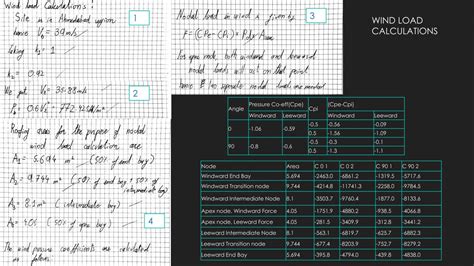 Wind load Calculations:
Site is in Ahmedabad region
hence Vb = 39 m/s
taking k1 = 1
k2 = 0.92
We get Vz = 35.88 m/s
Pz = 0.6 Vz² = 772.42
Roofing area for the purpose of nodal
wind load calculation are
A1 = 5.694 m² (50% of end bay)
A2 = 9.744 m² (50% of end bay + 50% of
intermediate bay)
A3 = 8.1 m² (intermediate bay)
A4 = 4.05 (50% of
The wind pressure coefficients are calculated
1
2
4
Nodal load in wind is given by
F = (CPe - CPi) × Pd × Area
For apex node, both windward and leeward
nodal loads will act on that point
hence 2 separate nodal loads are
3
WIND LOAD
CALCULATIONS
Angle Pressure Co-eff(Cpe) Cpi (Cpe-Cpi)
Windward Leeward Windward Leeward
0 -1.06 -0.59 -0.5 -0.56 -0.09
0.5 -1.56 -1.09
90 -0.8 -0.6 -0.5 -0.3 -0.1
0.5 -1.3 -1.1
Node Area C 0 1 C 0 2 C 90 1 C 90 2
Windward End Bay 5.694 -2463.0 -6861.2 -1319.5 -5717.6
Windward Transition node 9.744 -4214.8 -11741.3 -2258.0 -9784.5
Windward Intermediate Node 8.1 -3503.7 -9760.4 -1877.0 -8133.6
Apex node, Windward Force 4.05 -1751.9 -4880.2 -938.5 -4066.8
Apex node, Leeward Force 4.05 -281.5 -3409.8 -312.8 -3441.2
Leeward Intermediate Node 8.1 -563.1 -6819.7 -625.7 -6882.3
Leeward Transition node 9.744 -677.4 -8203.9 -752.7 -8279.2
Leeward End Bay 5.694 -395.8 -4794.0 -439.8 -4838.0